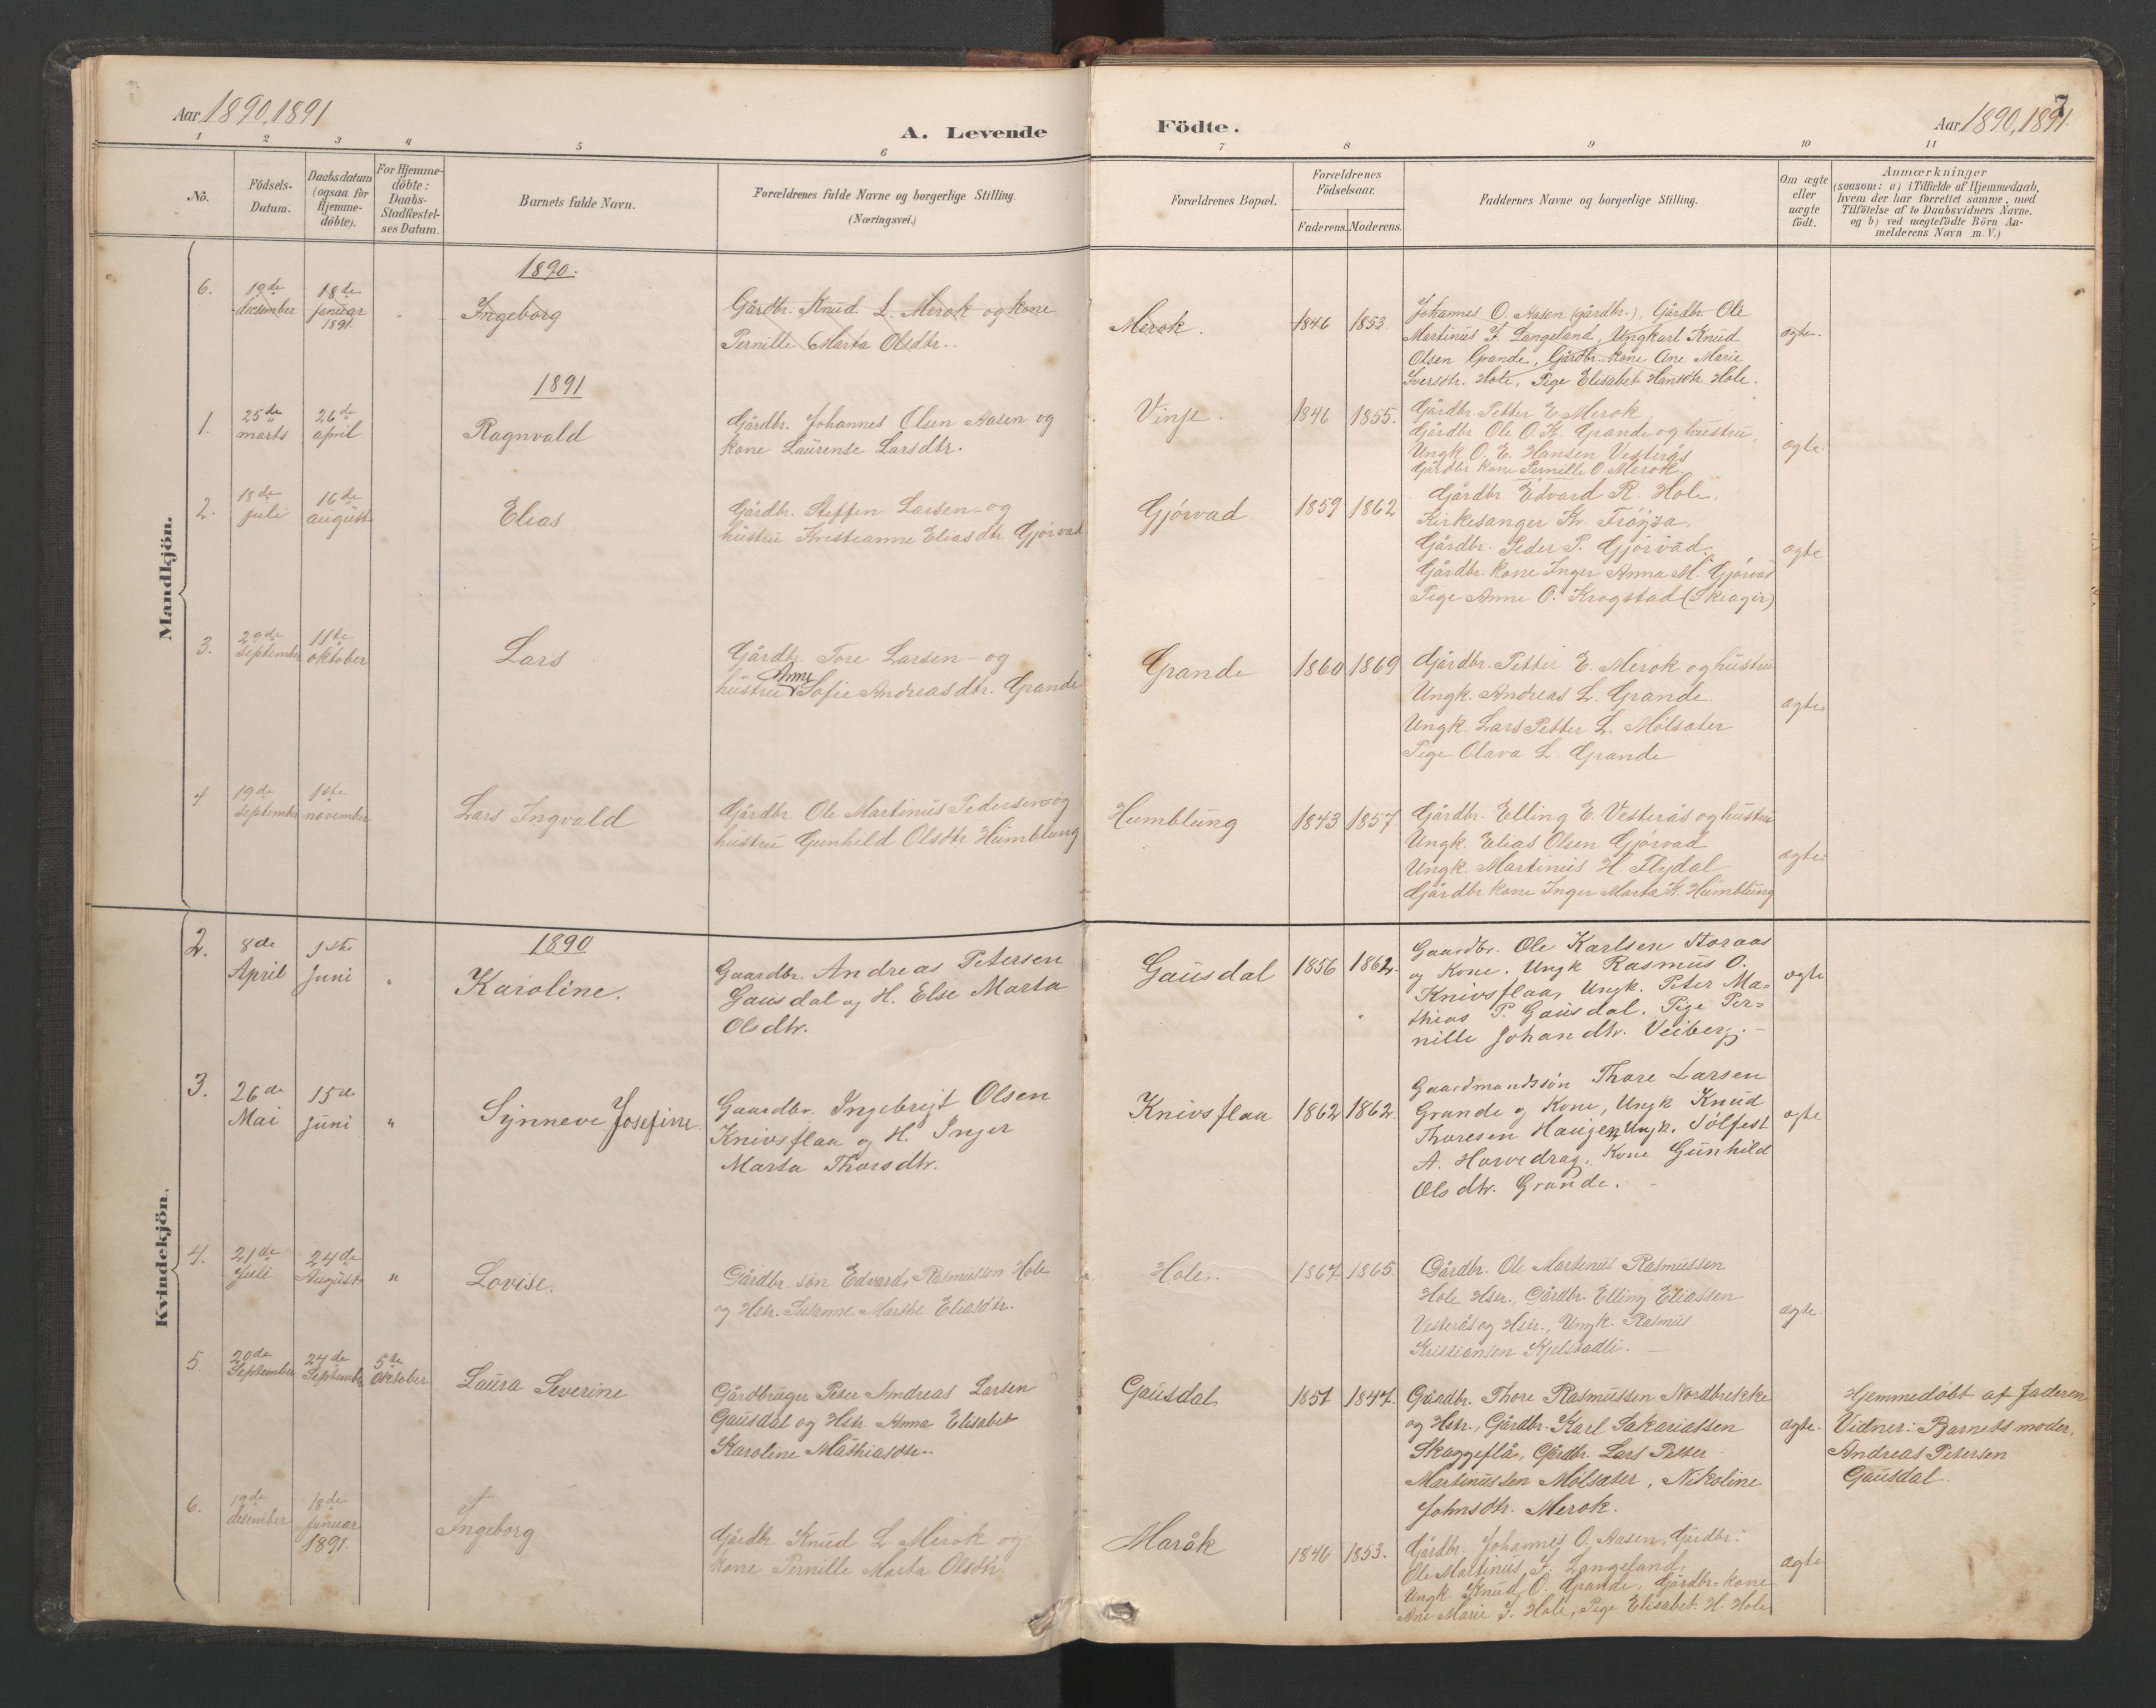 7
Aar 1890, 1891
A. Levende
Födte.
Aar 1890, 1891.
1 2 3 4 5 6 7 8 9 10 11
No.
Födsels-
Datum.
Daabsdatum
(ogsaa for
Hjemme-
döbte).
For Hjemme-
döbte:
Daabs-
Stadfæstel-
ses Datum.
Barnets fulde Navn.
Forældrenes fulde Navne og borgerlige Stilling.
(Næringsvei.)
Forældrenes Bopæl.
Forældrenes
Födselsaar.
Faderens. Moderens.
Faddernes Navne og borgerlige Stilling.
Om ægte
eller
uægte
födt.
Anmærkninger
(saasom: a) i Tilfælde af Hjemmedaab,
hvem der har forrettet samme, med
Tilföielse af to Daabsvidners Navne,
og b) ved uægtefödte Börn An-
melderens Navn m. V.)
Mandkjön.
1890.
6.
19de
desember
18de
januar
1891.
Ingeborg
Gårdbr. Knud L. Merok og kone
Pernille Marta Olsdtr.
Merok.
1846 1853.
Johannes O. Aasen (gårdbr.), Gårdbr. Ole
Martinus J. Langeland, Ungkarl Knud
Olsen Grande, Gårdbr. kone Ane Marie
Iversdtr. Hole, Pige Elisabet Hansdtr. Hole.
ægte.
1891
1.
25de
marts
26de
april
Ragnvald
Gårdbr. Johannes Olsen Aasen og
kone Laurense Larsdtr.
Vinje.
1846 1855.
Gårdbr. Petter E. Merok,
Gårdbr Ole O. K. Grande og hustru,
Ungk O. E. Hansen Vesterås
Gårdbr. kone Pernille O. Merok.
ægte.
2.
18de
juli
16de
august
Elias
Gårdbr. Steffen Larsen og
hustru Kristianne Eliasdtr. Gjörvad
Gjörvad
1859 1862
Gårdbr Edvard R. Hole,
Kirkesanger Kr. Fröysa,
Gårdbr. Peder P. Gjörvad,
Gårdbr. kone Inger Anna M. Gjörvad
Pige Anne O. Krogstad (Skeagir)
ægte
3.
29de
september
11te
oktober
Lars
Gårdbr. Tore Larsen og
Anne
hustru Sofie Andreasdtr. Grande
Grande
1860 1869
Gårdbr. Petter E. Merok og hustru
Ungk. Andreas L. Grande.
Ungk. Lars Petter L. Mölsæter
Pige Olava L. Grande
ægte
4.
19de
september
1ste
november
Lars Ingvald
Gårdbr. Ole Martinus Pedersen og
hustru Gunhild Olsdtr. Humblung
Humblung
1843 1857.
Gårdbr. Elling E. Vesterås og hustru
Ungk. Elias Olsen Gjörvad
Ungk. Martinus H Flydal
Gårdbr. kone Inger Marta K. Humblung
ægte
Kvindekjön.
1890
2.
8de
April
1ste
Juni
"
Karoline.
Gaardbr. Andreas Petersen
Gausdal og H. Else Marta
Olsdtr.
Gausdal
1856 1862.
Gaardbr. Ole Karlsen Horaas
og Kone. Ungk Rasmus O.
Knivsflaa, Ungk. Peter Ma=
thias P. Gausdal. Pige Per=
nille Johandtr. Veiberg.
ægte
3.
26de
Mai
15de
juni
"
Synneve Josefine.
Gaardbr. Ingebrigt Olsen
Knivsflaa og H. Inger
Marta Thorsdtr.
Knivsflaa
1862 1862.
Gaardmandssön Thore Larsen
Grande og Kone, Ungk Knud
Thoresen Haugen, Ungk. Sölfest
A. Horvedrag, Kone Gunhild
Olsdtr. Grande.
ægte
4.
21de
Juli
24de
August
"
Lovise.
Gårdbr. sön Edvard Rasmussen Hole
og Hstr. Susanne Marthe Eliasdtr.
Hole.
1867. 1865.
Gårdbr. Ole Martinus Rasmussen
Hole Hstr., Gårdbr. Elling Eliassen
Vesterås og Hstr., Ungk. Rasmus
Kristiansen Kjelstadli.
ægte.
5.
20de
September
24de
September
5te
Oktober
Laura Severine
Gårdbruger Peter Andreas Larsen
Gausdal og Hstr. Anna Elisabet
Karoline Mathiasdtr.
Gausdal
1851 1847.
Gårdbr. Thore Rasmussen Nordbrekke
og Hstr., Gårdbr. Karl Sakariassen
Skaggeflå, Gårdbr. Lars Petter
Martinussen Mölsæter, Nikoline
Johnsdtr. Merok.
ægte.
Hjemmedöbt af Faderen
Vidner: Barnets moder,
Andreas Petersen
Gausdal
6.
19de
desember
18de
januar
1891
Ingeborg
Gårdbr. Knud L. Merok og
kone Pernille Marta Olsdtr.
Maråk
1846 1853.
Gårdbr. Johannes O. Aasen, Gårdbr.
Ole Martinus J. Langeland,
Ungk. Knud O. Grande, Gårdbr-kone
Ane Marie J. Hole, Pige Elisabet H. Hole
ægte